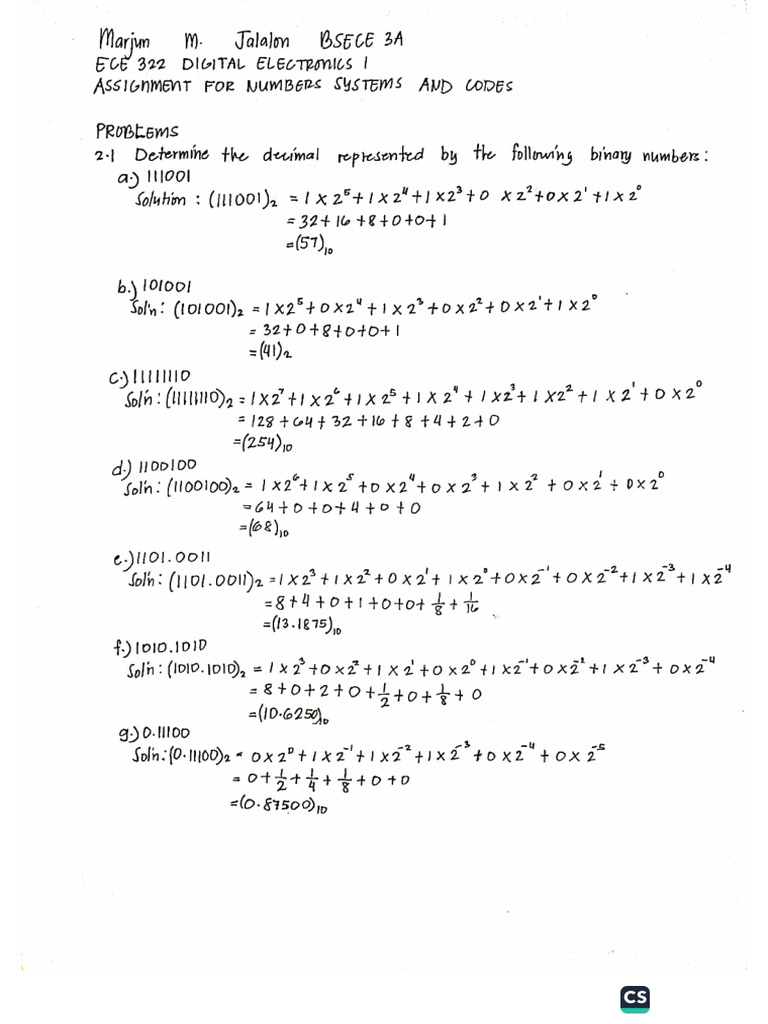 Marjun M. Jalalon BSECE 3A
ECE 322 DIGITAL ELECTRONICS 1
ASSIGNMENT FOR NUMBERS SYSTEMS AND CODES
PROBLEMS
2.1 Determine the decimal represented by the following binary numbers:
a.) 111001
Solution : (111001)₂ = 1 X 2⁵ + 1 X 2⁴ + 1 X 2³ + 0 X 2² + 0 X 2¹ + 1 X 2⁰
= 32 + 16 + 8 + 0 + 0 + 1
= (57)₁₀
b.) 101001
Sol'n : (101001)₂ = 1 X 2⁵ + 0 X 2⁴ + 1 X 2³ + 0 X 2² + 0 X 2¹ + 1 X 2⁰
= 32 + 0 + 8 + 0 + 0 + 1
= (41)₂
c.) 11111110
Sol'n : (11111110)₂ = 1 X 2⁷ + 1 X 2⁶ + 1 X 2⁵ + 1 X 2⁴ + 1 X 2³ + 1 X 2² + 1 X 2¹ + 0 X 2⁰
= 128 + 64 + 32 + 16 + 8 + 4 + 2 + 0
= (254)₁₀
d.) 1100100
Sol'n : (1100100)₂ = 1 X 2⁶ + 1 X 2⁵ + 0 X 2⁴ + 0 X 2³ + 1 X 2² + 0 X 2¹ + 0 X 2⁰
= 64 + 0 + 0 + 4 + 0 + 0
= (68)₁₀
e.) 1101.0011
Sol'n : (1101.0011)₂ = 1 X 2³ + 1 X 2² + 0 X 2¹ + 1 X 2⁰ + 0 X 2⁻¹ + 0 X 2⁻² + 1 X 2⁻³ + 1 X 2⁻⁴
= 8 + 4 + 0 + 1 + 0 + 0 + 1/8 + 1/16
= (13.1875)₁₀
f.) 1010.1010
Sol'n : (1010.1010)₂ = 1 X 2³ + 0 X 2² + 1 X 2¹ + 0 X 2⁰ + 1 X 2⁻¹ + 0 X 2⁻² + 1 X 2⁻³ + 0 X 2⁻⁴
= 8 + 0 + 2 + 0 + 1/2 + 0 + 1/8 + 0
= (10.6250)₁₀
g.) 0.11100
Sol'n : (0.11100)₂ = 0 X 2⁰ + 1 X 2⁻¹ + 1 X 2⁻² + 1 X 2⁻³ + 0 X 2⁻⁴ + 0 X 2⁻⁵
= 0 + 1/2 + 1/4 + 1/8 + 0 + 0
= (0.87500)₁₀
CS